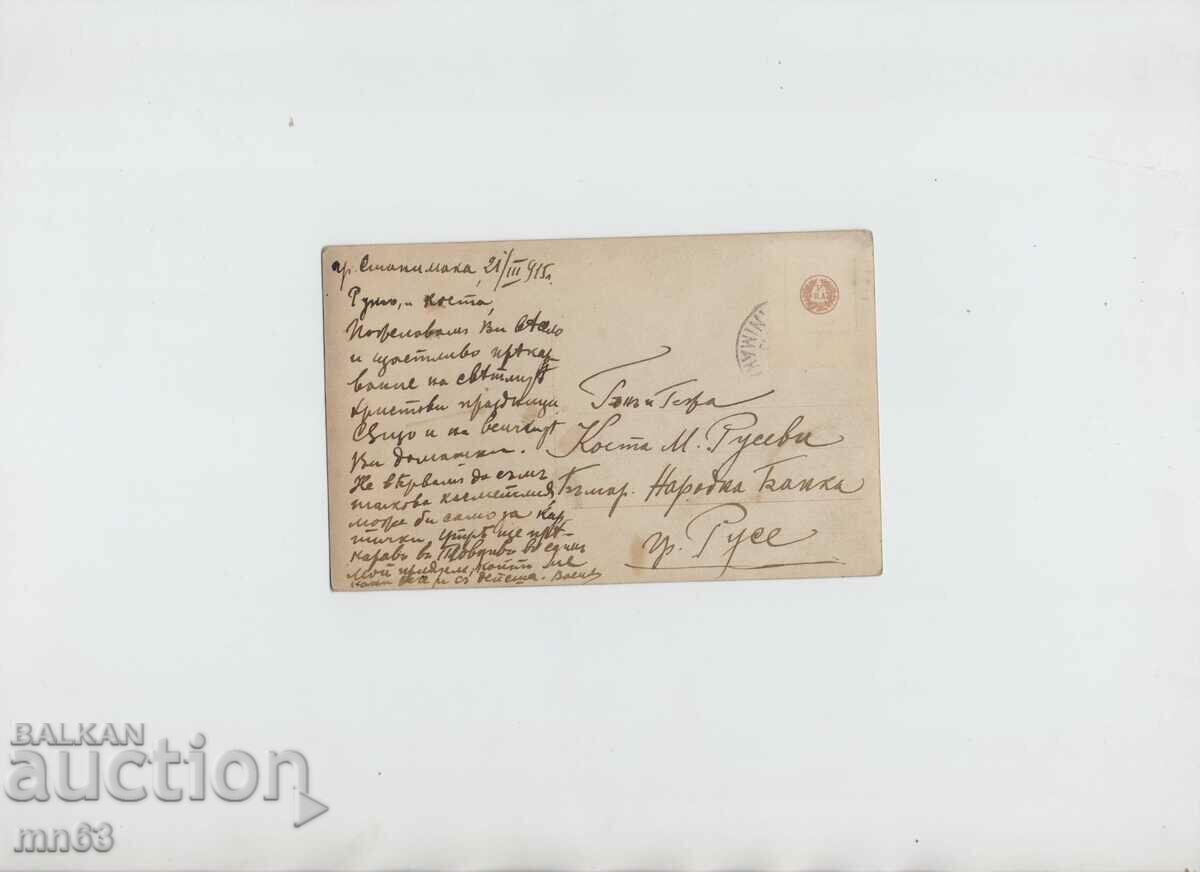 гр. Станимака, 21/III 915г.
и Коста,
Пожелавамъ Ви весело
и щастливо прѣкар
вание на свѣтлитѣ
Христови праздници
Сѫщо и на всичкитѣ
Ви домашни.
Не вѣрвамъ да съмъ
такова късметлия,
може би само за кар
тички. Утрѣ ще прѣ-
карамъ въ Пловдивъ въ единъ
мой приятел, който ме
кани и съ депеша.
Коста М. Русеви
Българ. Народна Банка
гр. Русе
BALKAN
auction
mn63